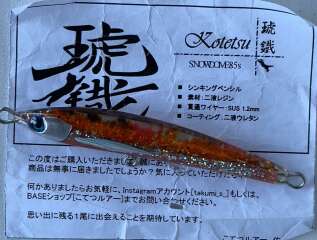 琥鐵
Kotetsu
琥鐵
SNOWDOME85s
■ シンキングペンシル
■ 素材:二液レジン
■ 貫通ワイヤー:SUS 1.2mm
■ コーティング:二液ウレタン
この度はご購入いただきまし
商品は無事に届きましたでしょうか?気に入っていただけ
何かありましたらお気軽に、Instagramアカウント[takumi_s_]もしくは、
BASEショップ[こてつルアー]までお問い合わせください。
思い出に残る1尾に出会えることを期待しています。
こてつルアー